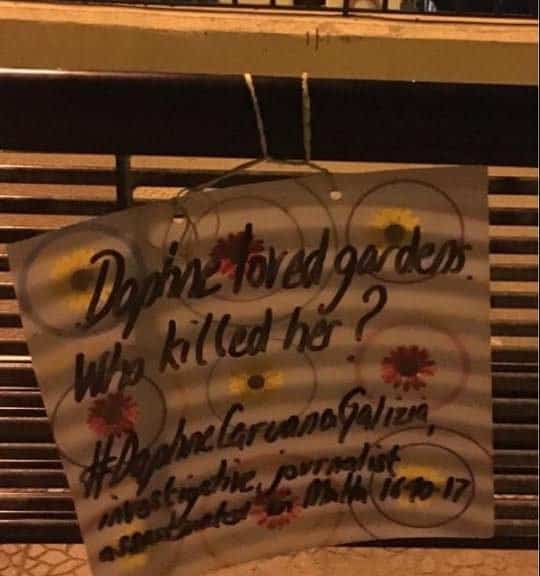 Daphne loved gardens.
Who killed her?
#DaphneCaruanaGalizia,
investigative journalist
assassinated in Malta 16-10-17